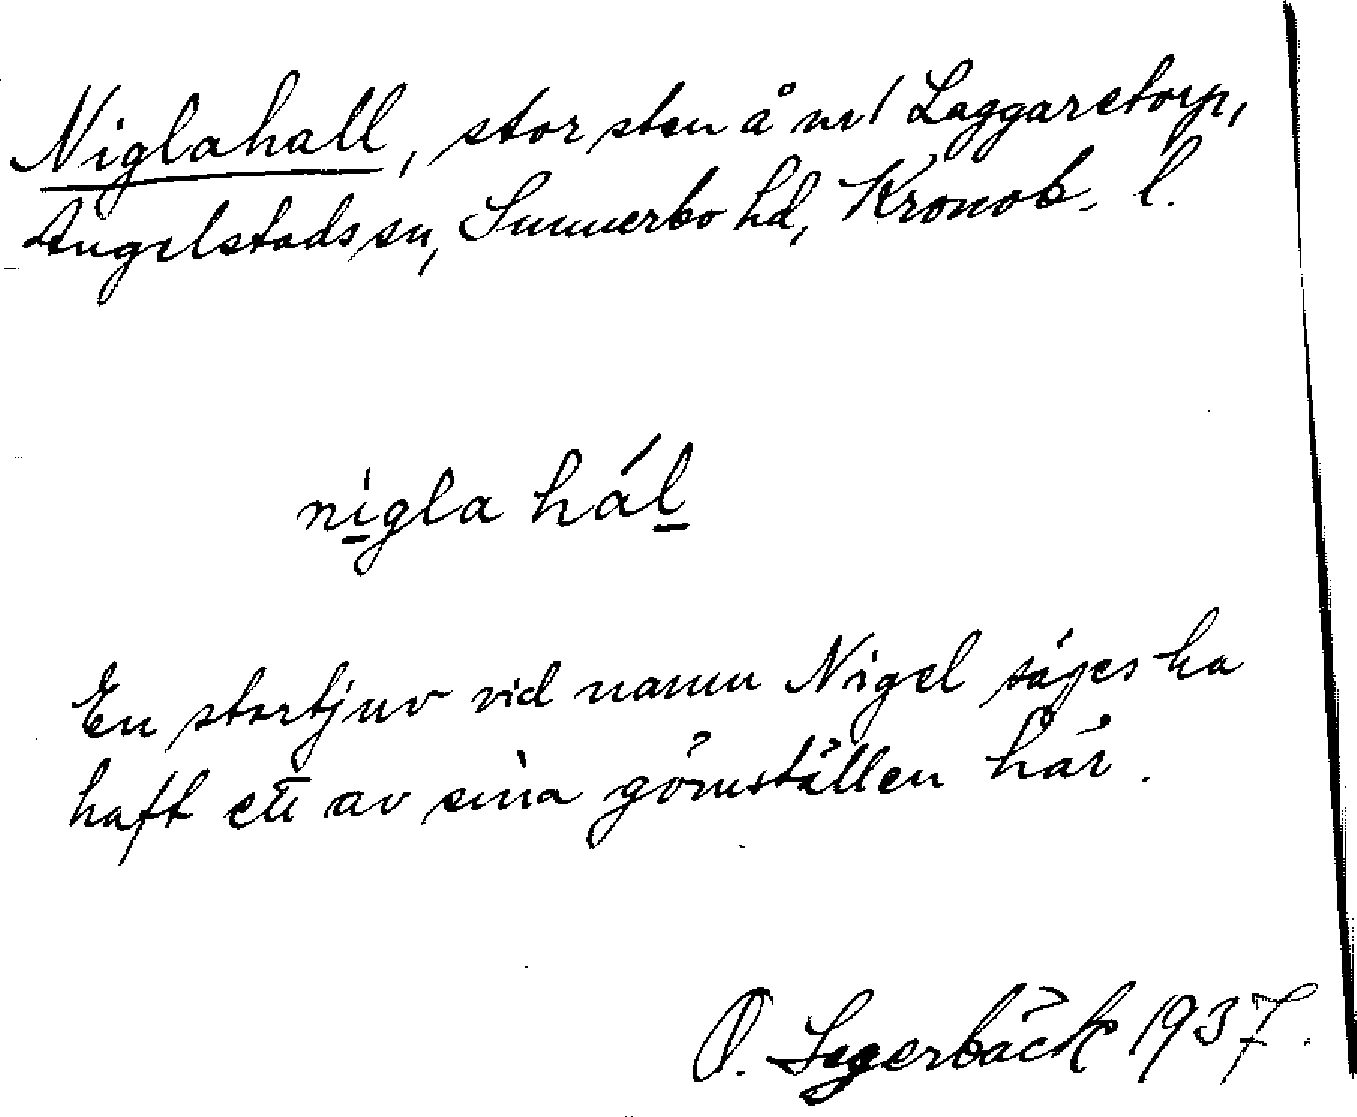 Niglahall, stor sten å m/ Laggaretorp,
Angelstads sn, Sunnerbo hd, Kronob. l.
nigla hál
En stortjuv vid namn Nigel säges ha
haft ett av sina gömställen här.
O. Segerbäck 1937.